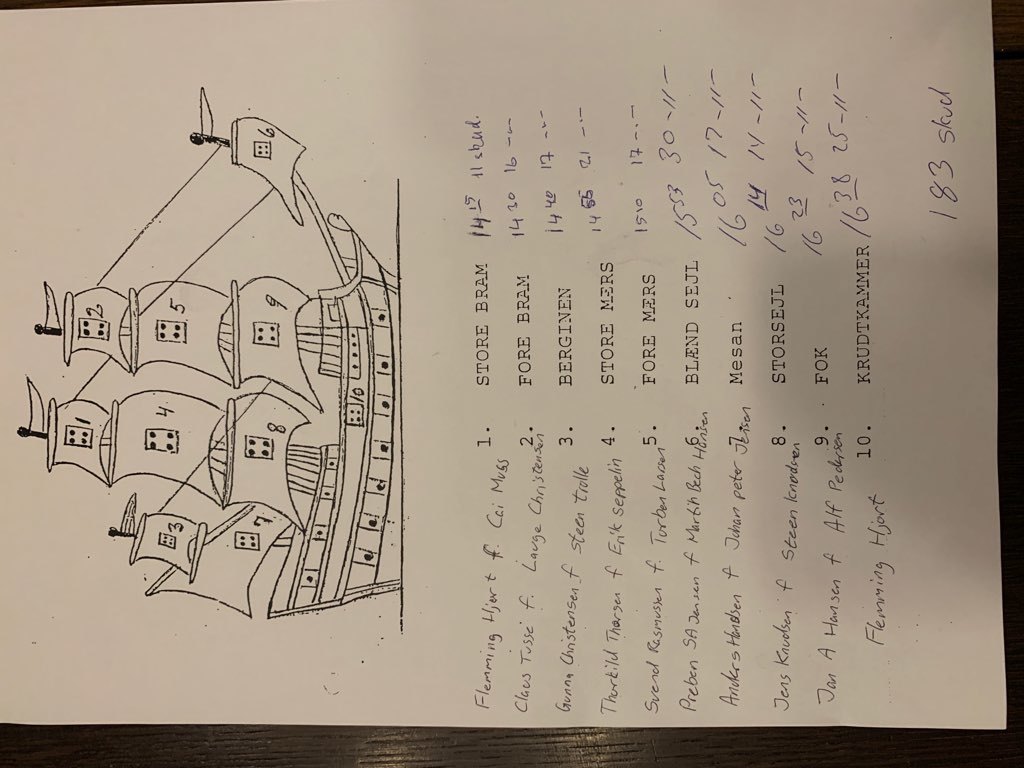 1
2
3
4
5
6
7
8
9
10
Flemming Hjort f. Cai Muss 1. STORE BRAM 14 15 11 skud.
Claus Tusse f. Lauge Christensen 2. FORE BRAM 14 30 16 -"-
Gunna Christensen f Steen trolle 3. BERGINEN 14 40 17 -"-
Thorkild Thorsen f Erik Seppelin 4. STORE MÆRS 14 55 21 -"-
Svend Rasmussen f. Torben Larsen 5. FORE MÆRS 15 10 17 -"-
Preben SA Jensen f Martin Bech Hansen 6. BLÆND SEJL 15 53 30 -11-
Anders Hansen f Johan peter Jensen 7. Mesan 16 05 17 -11-
Jens Knudsen f Steen Knudsen 8. STORSEJL 16 14 14 -11-
Jan A Hansen f Alf Pedersen 9. FOK 16 23 15 -11-
Flemming Hjort 10. KRUDTKAMMER 16 38 25 -11-
183 skud